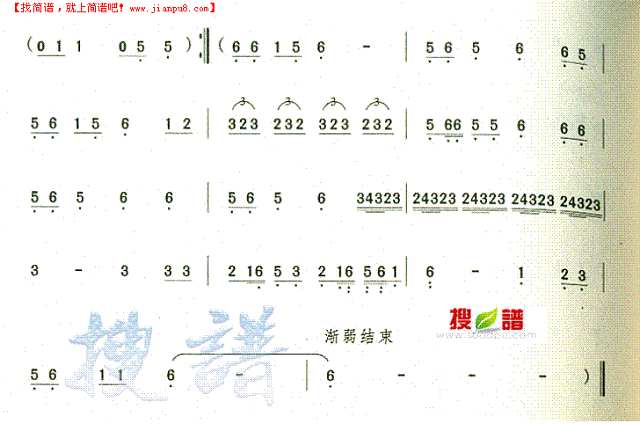 【找简谱，就上简谱吧！www.jianpu8.com】
( 0 1 1 0 5 5 ) :‖ ( 6 6 1 5 6 - | 5 6 5 6 6 5 |
5 6 1 5 6 1 2 | 3 323 3 232 3 323 3 232 | 5 66 5 5 6 6 6 |
5 6 5 6 6 | 5 6 5 6 34323 | 24323 24323 24323 24323 |
3 - 3 3 3 | 2 16 5 3 2 16 5 6 1 | 6 - 1 2 3 |
搜谱
www.sooopu.com
渐弱结束
搜譜
5 6 1 1 6 - | 6 - - - ) ‖